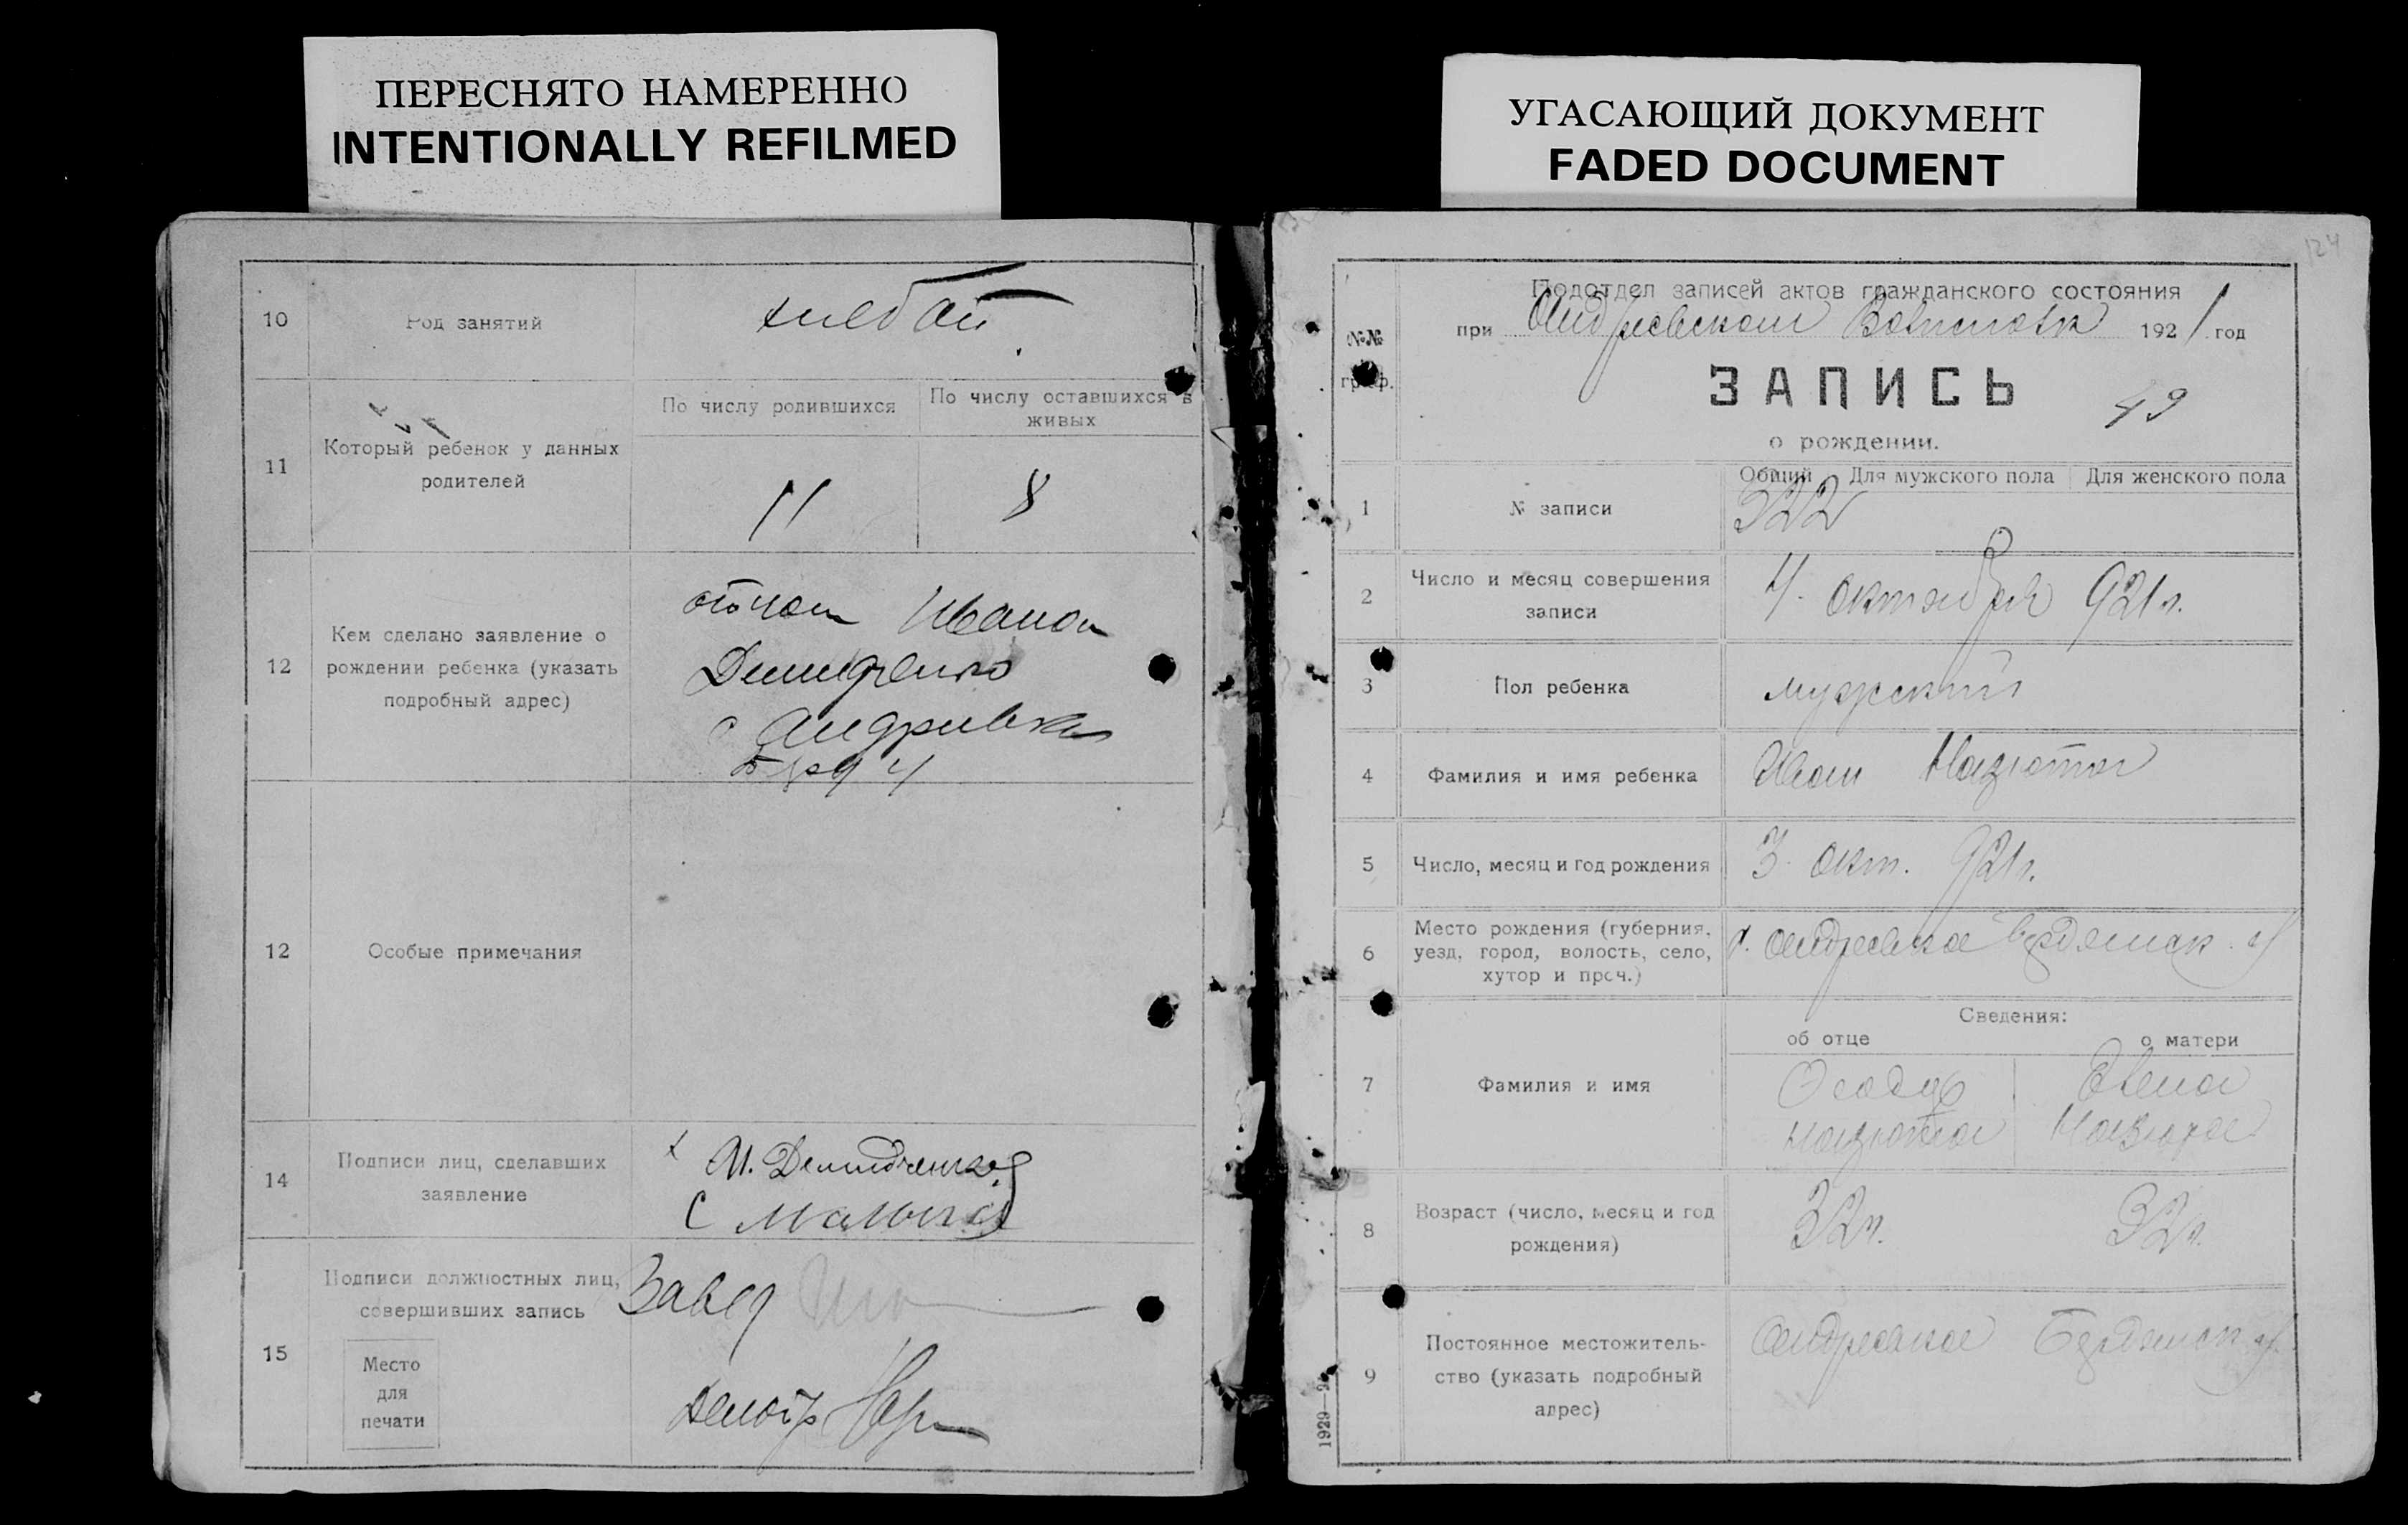 ПЕРЕСНЯТО НАМЕРЕННО
INTENTIONALLY REFILMED
10
Род занятий
хлебоп
11
Который ребенок у данных
родителей
По числу родившихся
По числу оставшихся в
живых
11
8
12
Кем сделано заявление о
рождении ребенка (указать
подробный адрес)
отцом Иваном
Демидченко
с Андривка
12
Особые примечания
14
Подписи лиц, сделавших
заявление
И. Демидченко
15
Подписи должностных лиц,
совершивших запись
Завед
Место
для
печати
делопр
УГАСАЮЩИЙ ДОКУМЕНТ
FADED DOCUMENT
124
№№
граф.
Подотдел записей актов гражданского состояния
при Андреевском Волисполк 1921 год
ЗАПИСЬ
49
о рождении.
1
№ записи
Общий
Для мужского пола
Для женского пола
322
2
Число и месяц совершения
записи
4. октября 921 г.
3
Пол ребенка
мужский
4
Фамилия и имя ребенка
Иван Мазюта
5
Число, месяц и год рождения
3. окт. 921 г.
6
Место рождения (губерния,
уезд, город, волость, село,
хутор и проч.)
с. Андреевка Бердянск. у
Сведения:
об отце
о матери
7
Фамилия и имя
Феодор
Мазюта
Елена
Мазюта
8
Возраст (число, месяц и год
рождения)
32 г.
32 г.
9
Постоянное местожитель-
ство (указать подробный
адрес)
Андреевка Бердянск у.
1929—9